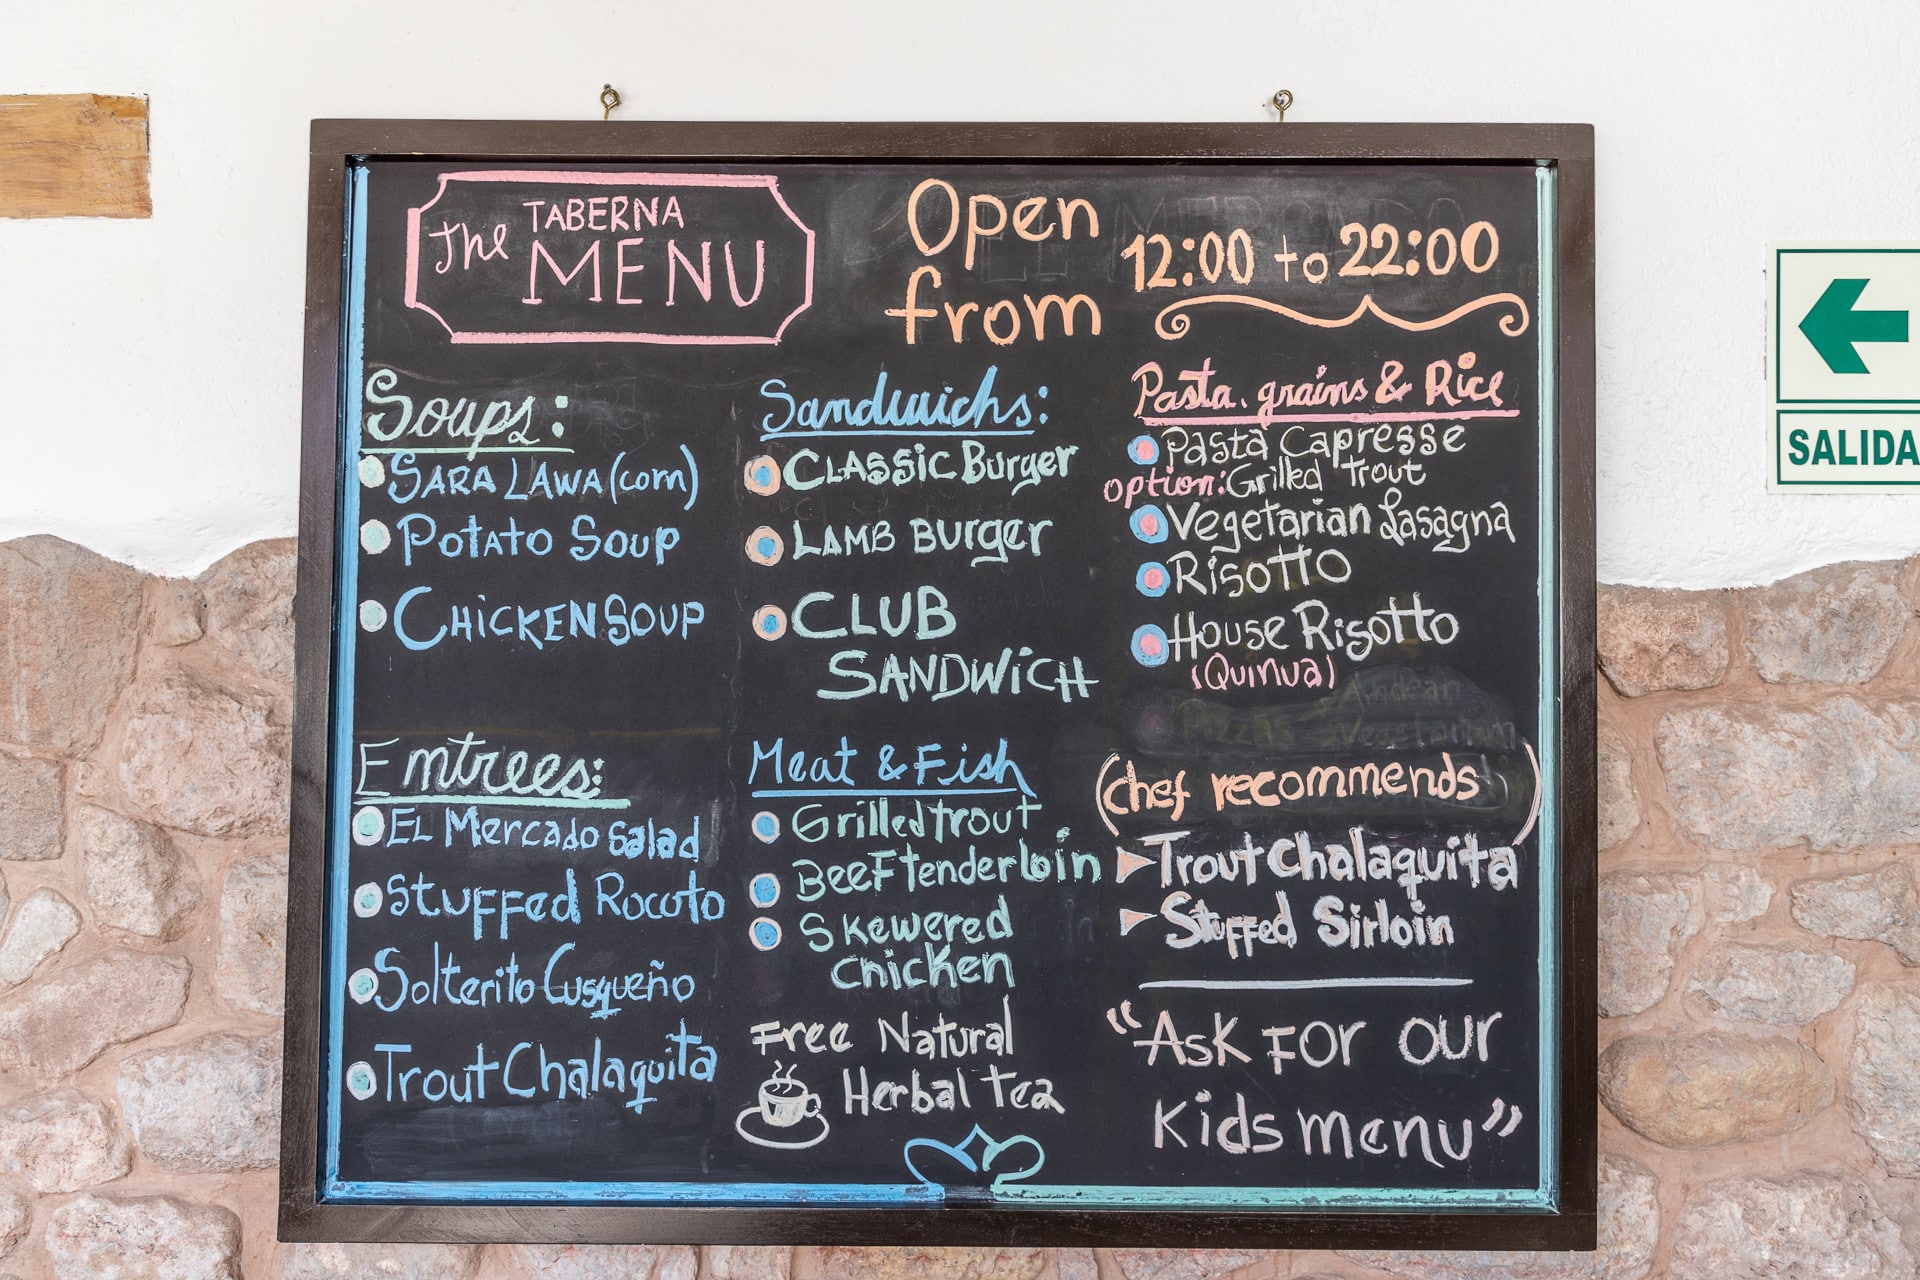 The TABERNA
MENU
Open
from
12:00 to 22:00
Soups:
SARA LAWA (corn)
Potato Soup
CHICKEN SOUP
Sandwichs:
CLASSIC Burger
LAMB Burger
CLUB
SANDWICH
Pasta, grains & Rice
Pasta Capresse
option: Grilled trout
Vegetarian Lasagna
Risotto
House Risotto
(Quinua)
Andean
Pizzas Vegetarian
Entrees:
EL Mercado Salad
Stuffed Rocoto
Solterito Cusqueño
Trout Chalaquita
Meat & Fish
Grilled trout
Beef tenderloin
Skewered
chicken
Free Natural
Herbal Tea
(chef recommends)
Trout Chalaquita
Stuffed Sirloin
"Ask For our
Kids menu"
SALIDA